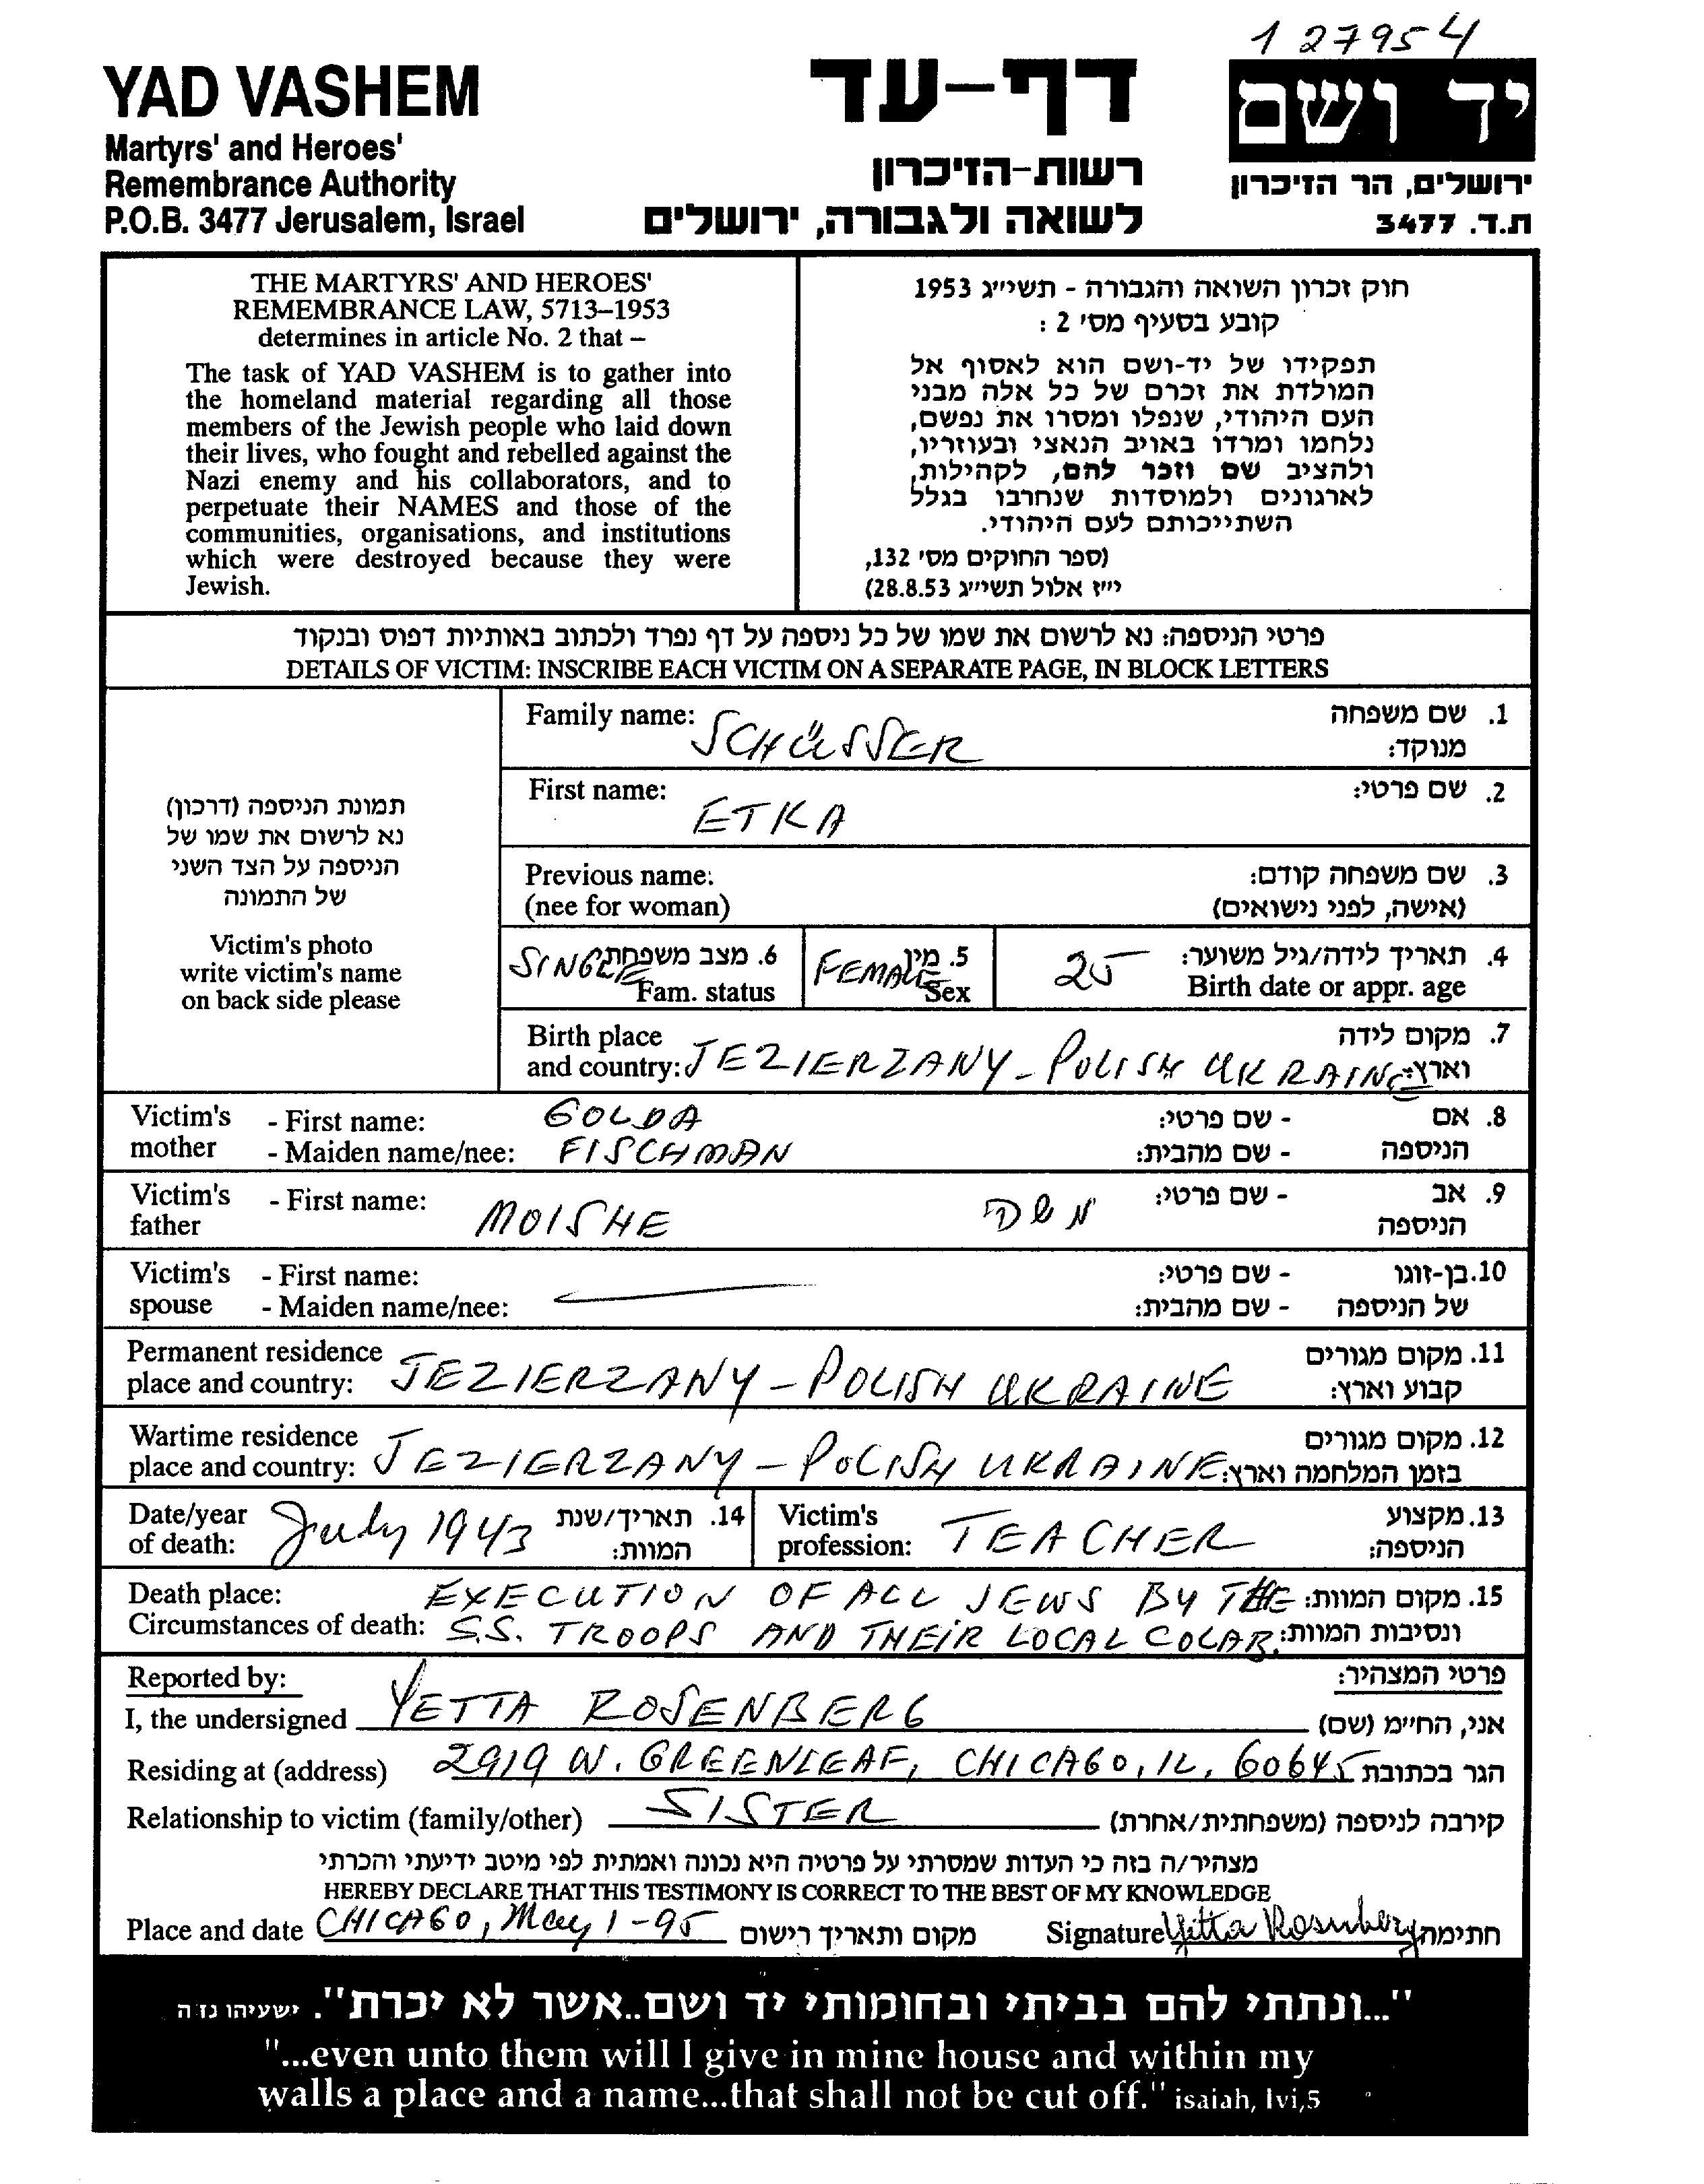 127954
YAD VASHEM
Martyrs' and Heroes'
Remembrance Authority
P.O.B. 3477 Jerusalem, Israel
דף-עד
רשות-הזיכרון
לשואה ולגבורה, ירושלים
יד ושם
ירושלים, הר הזיכרון
ת.ד. 3477
THE MARTYRS' AND HEROES'
REMEMBRANCE LAW, 5713–1953
determines in article No. 2 that –
The task of YAD VASHEM is to gather into
the homeland material regarding all those
members of the Jewish people who laid down
their lives, who fought and rebelled against the
Nazi enemy and his collaborators, and to
perpetuate their NAMES and those of the
communities, organisations, and institutions
which were destroyed because they were
Jewish.
חוק זכרון השואה והגבורה - תשי"ג 1953
קובע בסעיף מס' 2 :
תפקידו של יד-ושם הוא לאסוף אל
המולדת את זכרם של כל אלה מבני
העם היהודי, שנפלו ומסרו את נפשם,
נלחמו ומרדו באויב הנאצי ובעוזריו,
ולהציב שם וזכר להם, לקהילות,
לארגונים ולמוסדות שנחרבו בגלל
השתייכותם לעם היהודי.
(ספר החוקים מס' 132,
י"ז אלול תשי"ג 28.8.53)
פרטי הניספה: נא לרשום את שמו של כל ניספה על דף נפרד ולכתוב באותיות דפוס ובנקוד
DETAILS OF VICTIM: INSCRIBE EACH VICTIM ON A SEPARATE PAGE, IN BLOCK LETTERS
תמונת הניספה (דרכון)
נא לרשום את שמו של
הניספה על הצד השני
של התמונה
Victim's photo
write victim's name
on back side please
Family name: SCHÜSSER 1. שם משפחה
מנוקד:
First name: ETKA 2. שם פרטי:
Previous name: 3. שם משפחה קודם:
(nee for woman) (אישה, לפני נישואים)
SINGLE 6. מצב משפחתי FEMALE 5. מין 25 4. תאריך לידה/גיל משוער:
Fam. status Sex Birth date or appr. age
Birth place 7. מקום לידה
and country: JEZIERZANY - POLISH UKRAINE וארץ:
Victim's - First name: GOLDA - שם פרטי: 8. אם
mother - Maiden name/nee: FISCHMAN - שם מהבית: הניספה
Victim's - First name: MOISHE משה - שם פרטי: 9. אב
father הניספה
Victim's - First name: - שם פרטי: 10. בן-זוגו
spouse - Maiden name/nee: - שם מהבית: של הניספה
Permanent residence 11. מקום מגורים
place and country: JEZIERZANY - POLISH UKRAINE קבוע וארץ:
Wartime residence 12. מקום מגורים
place and country: JEZIERZANY - POLISH UKRAINE בזמן המלחמה וארץ:
Date/year July 1943 14. תאריך/שנת Victim's TEACHER 13. מקצוע
of death: המוות: profession: הניספה:
Death place: EXECUTION OF ALL JEWS BY THE 15. מקום המוות:
Circumstances of death: S.S. TROOPS AND THEIR LOCAL COLAB. ונסיבות המוות:
Reported by: פרטי המצהיר:
I, the undersigned YETTA ROSENBERG אני, החי"מ (שם)
Residing at (address) 2919 W. GREENLEAF, CHICAGO, IL, 60645 הגר בכתובת
Relationship to victim (family/other) SISTER קירבה לניספה (משפחתית/אחרת)
מצהיר/ה בזה כי העדות שמסרתי על פרטיה היא נכונה ואמתית לפי מיטב ידיעתי והכרתי
HEREBY DECLARE THAT THIS TESTIMONY IS CORRECT TO THE BEST OF MY KNOWLEDGE
Place and date CHICAGO, May 1-95 מקום ותאריך רישום Signature Yetta Rosenberg חתימה
"...ונתתי להם בביתי ובחומותי יד ושם..אשר לא יכרת". ישעיהו נו ה
"...even unto them will I give in mine house and within my
walls a place and a name...that shall not be cut off." isaiah, lvi,5